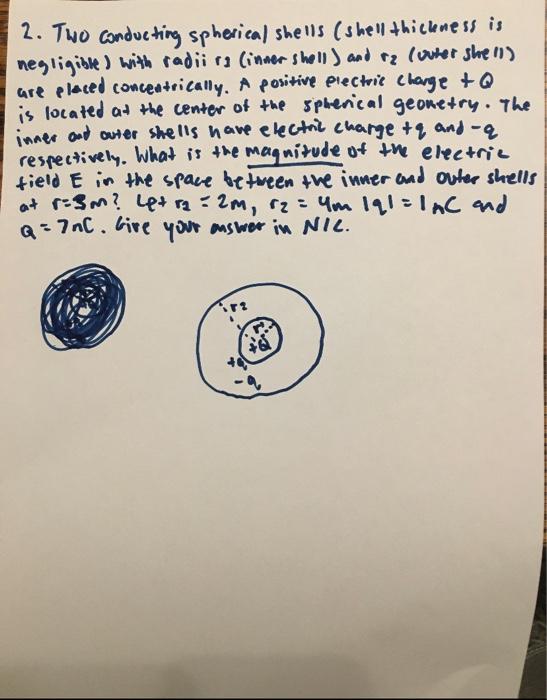 2. Two conducting spherical shells (shell thickness is
negligible) with radii r1 (inner shell) and r2 (outer shell)
are placed concentrically. A positive electric charge +Q
is located at the center of the spherical geometry. The
inner and outer shells have electric charge +q and -q
respectively. What is the magnitude of the electric
field E in the space between the inner and outer shells
at r=3m? Let r1 = 2m, r2 = 4m |q| = 1nC and
Q = 7nC. Give your answer in N/C.
r2
r1
+Q
+q
-q